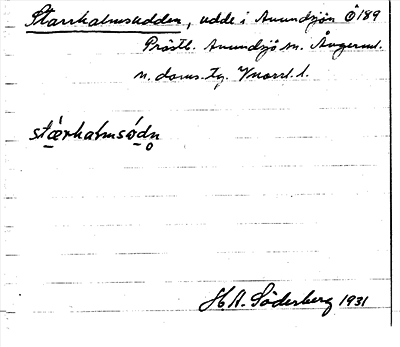 Starrholmsudden, udde i Anundsjön Ö 189
Prästb. Anundsjö sn. Ångerml.
n. doms. tg. Vnorrl. l.
stárholmsódn
H. A. Söderberg 1931